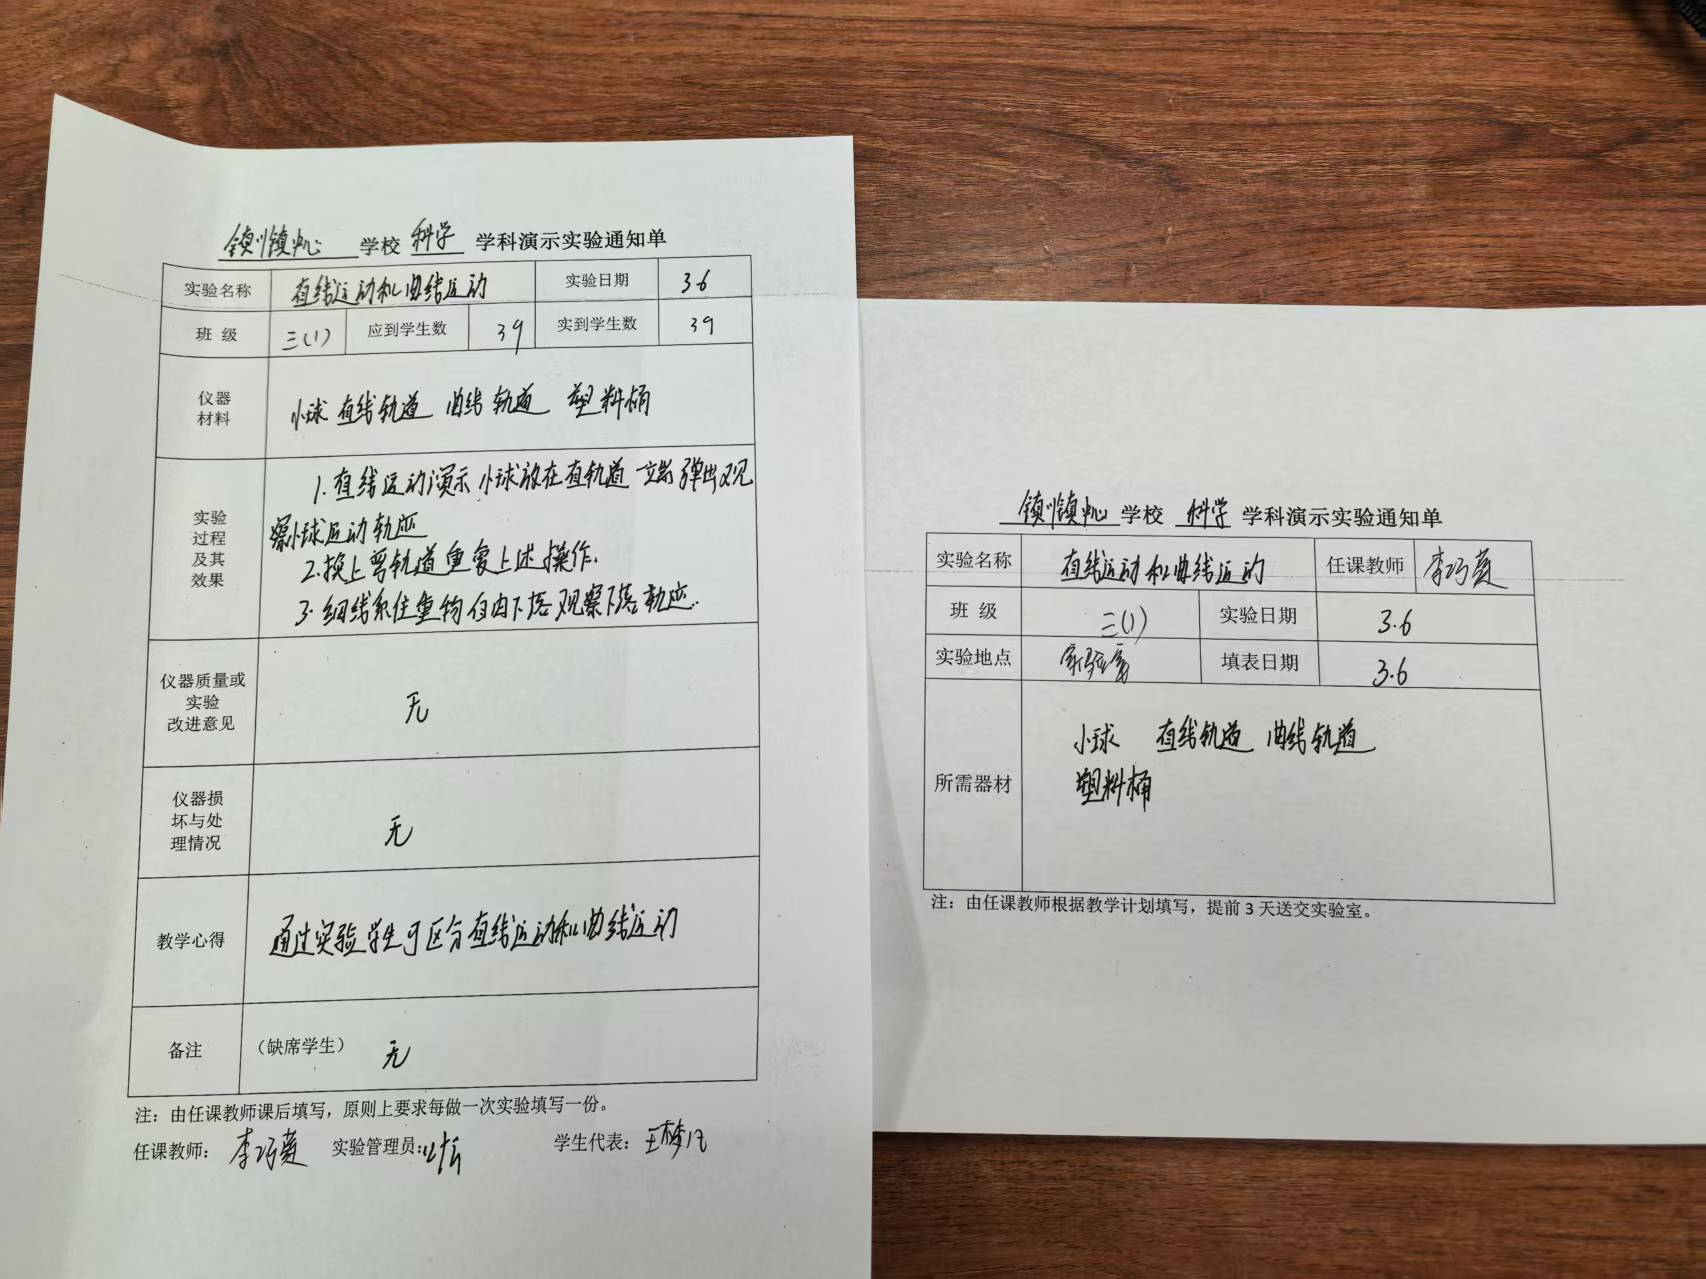 镇川镇中心 学校 科学 学科演示实验通知单
实验名称 直线运动和曲线运动 实验日期 3.6
班 级 三(1) 应到学生数 39 实到学生数 39
仪器
材料
小球 直线轨道 曲线轨道 塑料桶
实验
过程
及其
效果
1.直线运动演示 小球放在直轨道一端弹出观
察小球运动轨迹
2.换上弯轨道重复上述操作.
3.细线系住重物自由下落观察下落轨迹.
仪器质量或
实验
改进意见
无
仪器损
坏与处
理情况
无
教学心得 通过实验学生可区分直线运动和曲线运动
备注 （缺席学生） 无
注：由任课教师课后填写，原则上要求每做一次实验填写一份。
任课教师： 李巧 实验管理员： 学生代表： 王梦凡
镇川镇中心 学校 科学 学科演示实验通知单
实验名称 直线运动和曲线运动 任课教师 李巧
班 级 三(1) 实验日期 3.6
实验地点 实验室 填表日期 3.6
所需器材
小球 直线轨道 曲线轨道
塑料桶
注：由任课教师根据教学计划填写，提前 3 天送交实验室。